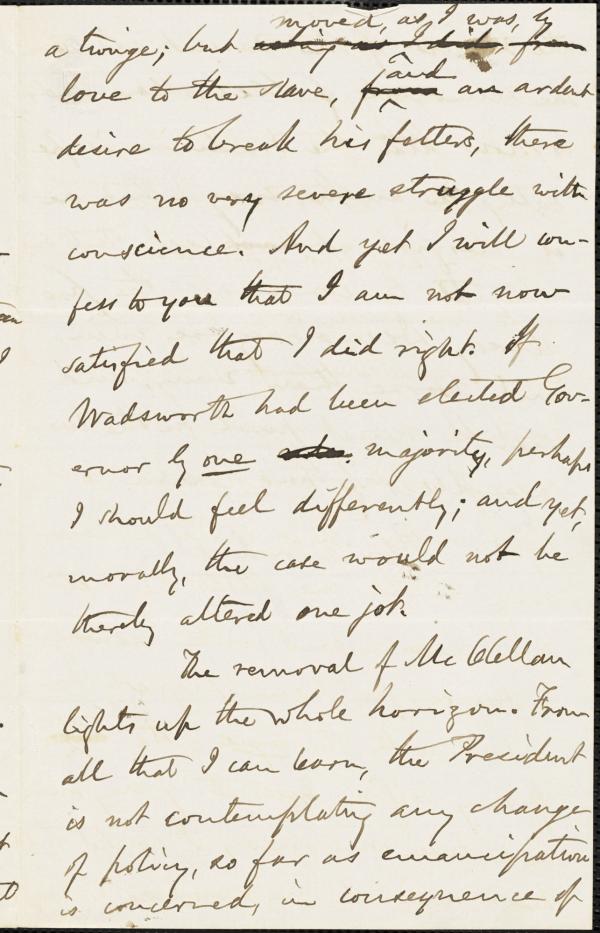 moved, as I was, by
a twinge; but acting as I did, from
and
love to the slave, from an ardent
desire to break his fetters, there
was no very severe struggle with
conscience. And yet I will con-
fess to you that I am not now
satisfied that I did right. If
Wadsworth had been elected Gov-
ernor by one majority, perhaps
I should feel differently; and yet,
morally, the case would not be
thereby altered one jot.
The removal of McClellan
lights up the whole horizon. From
all that I can learn, the President
is not contemplating any change
of policy, so far as emancipation
is concerned, in consequence of